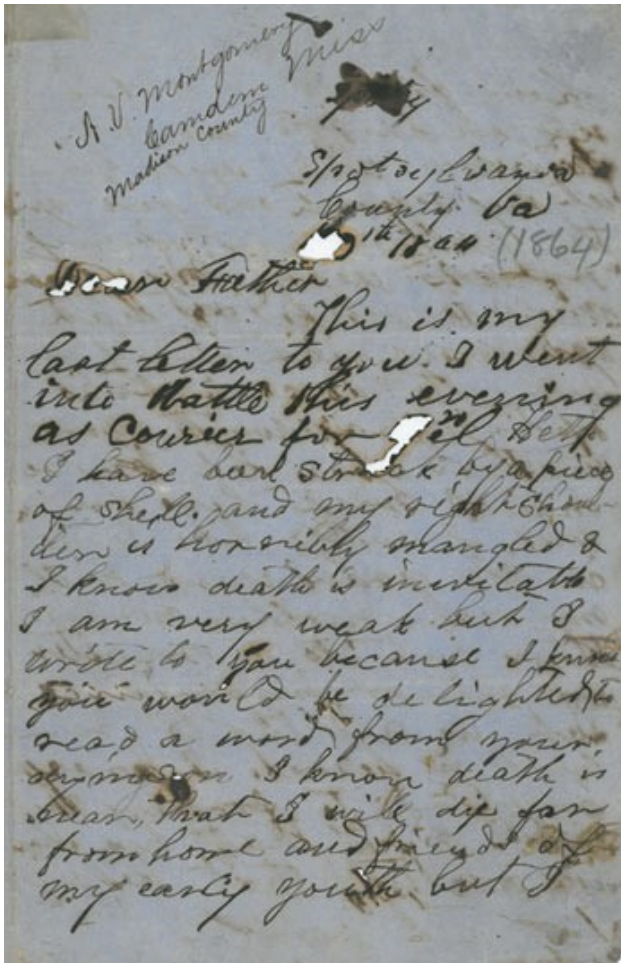 A. V. Montgomery
Camden Miss
Madison County
Spotsylvania
County Va
18 64 (1864)
Dear Father
This is my
last letter to you. I went
into Battle this evening
as Courier for Heth
I have been struck by a piece
of shell. and my right shoul-
der is horribly mangled &
I know death is inevitable
I am very weak but I
write to you because I know
you would be delighted to
read a word from your
dying son I know death is
near, that I will die far
from home and friends of
my early youth but I